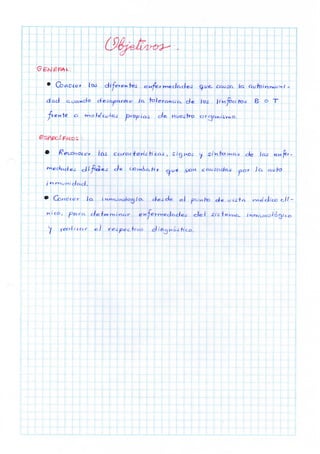 Objetivos.
GENERAL
• Conocer las diferentes enfermedades que causa la autoinmuni-
dad cuando desaparece la tolerancia de los linfocitos B o T
frente a moléculas propias de nuestro organismo.
ESPECÍFICOS:
• Reconocer las características, signos y síntomas de las enfer-
medades difíciles de combatir que son causadas por la auto
inmunidad.
• Conocer la inmunología desde el punto de vista médico clí-
nico, para determinar enfermedades del sistema inmunológico
y realizar el respectivo diagnóstico.